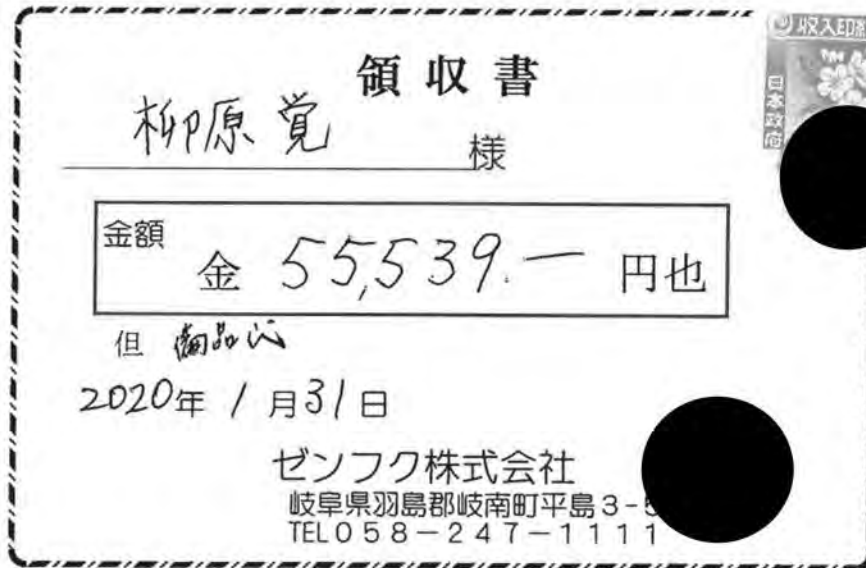 収入印紙
日本政府
領収書
柳原覚 様
金額
金 55,539.— 円也
但 備品代
2020年 1月31日
ゼンフク株式会社
岐阜県羽島郡岐南町平島3-5
TEL058-247-1111